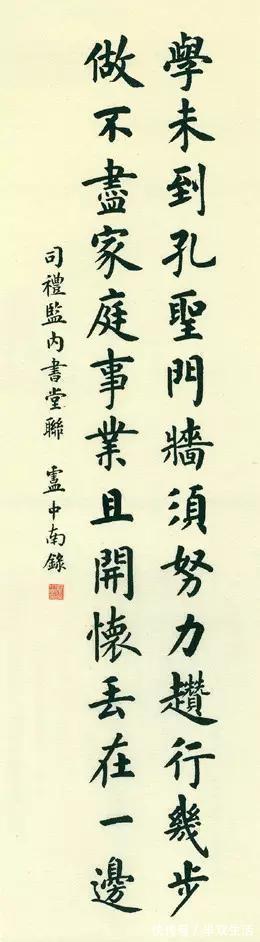 學未到孔聖門牆須努力趲行幾步
做不盡家庭事業且開懷丟在一邊
司禮監內書堂聯 盧中南錄
快传号/半双生活